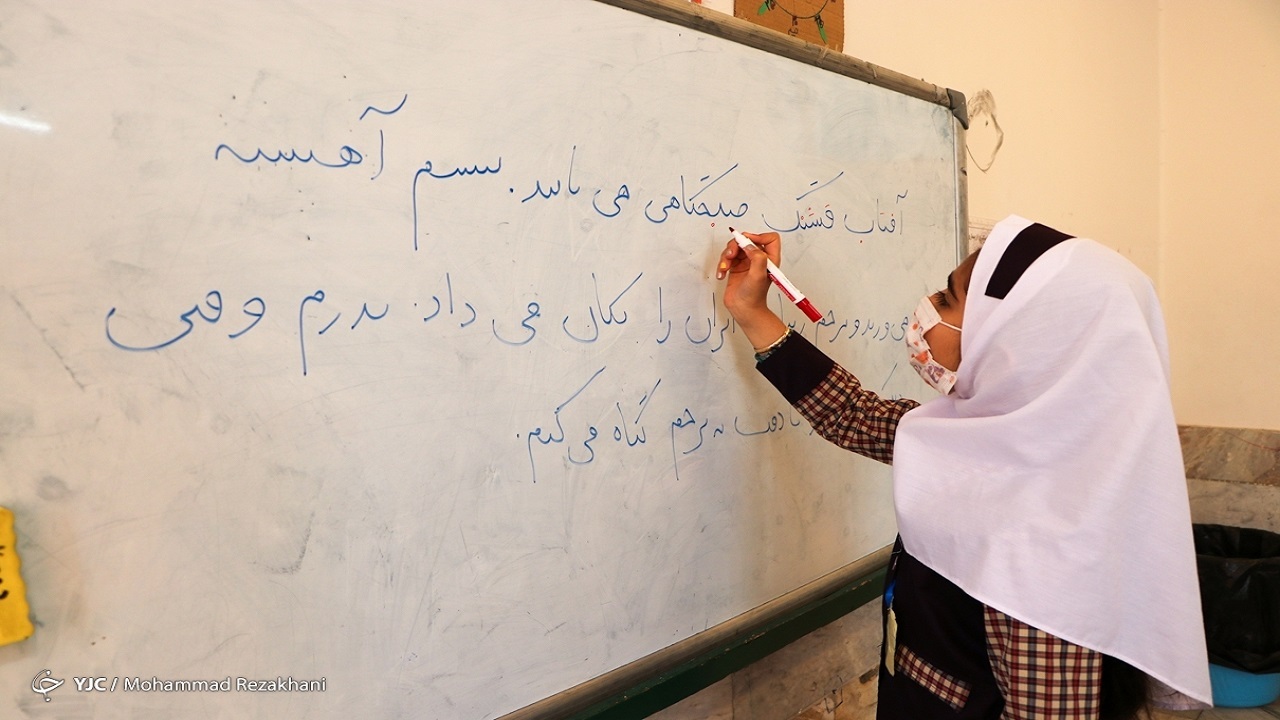 آفتاب قشنگ صبحگاهی می تابید. نسیم آهسته
می وزید و پرچم زیبای ایران را تکان می داد. پدرم و
با دقت به پرچم نگاه می کنیم.
YJC / Mohammad Rezakhani